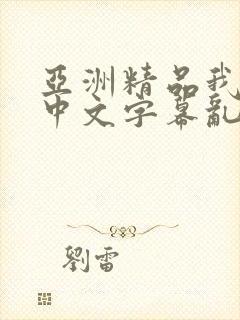 亞洲精品我
中文字幕亂
劉雷